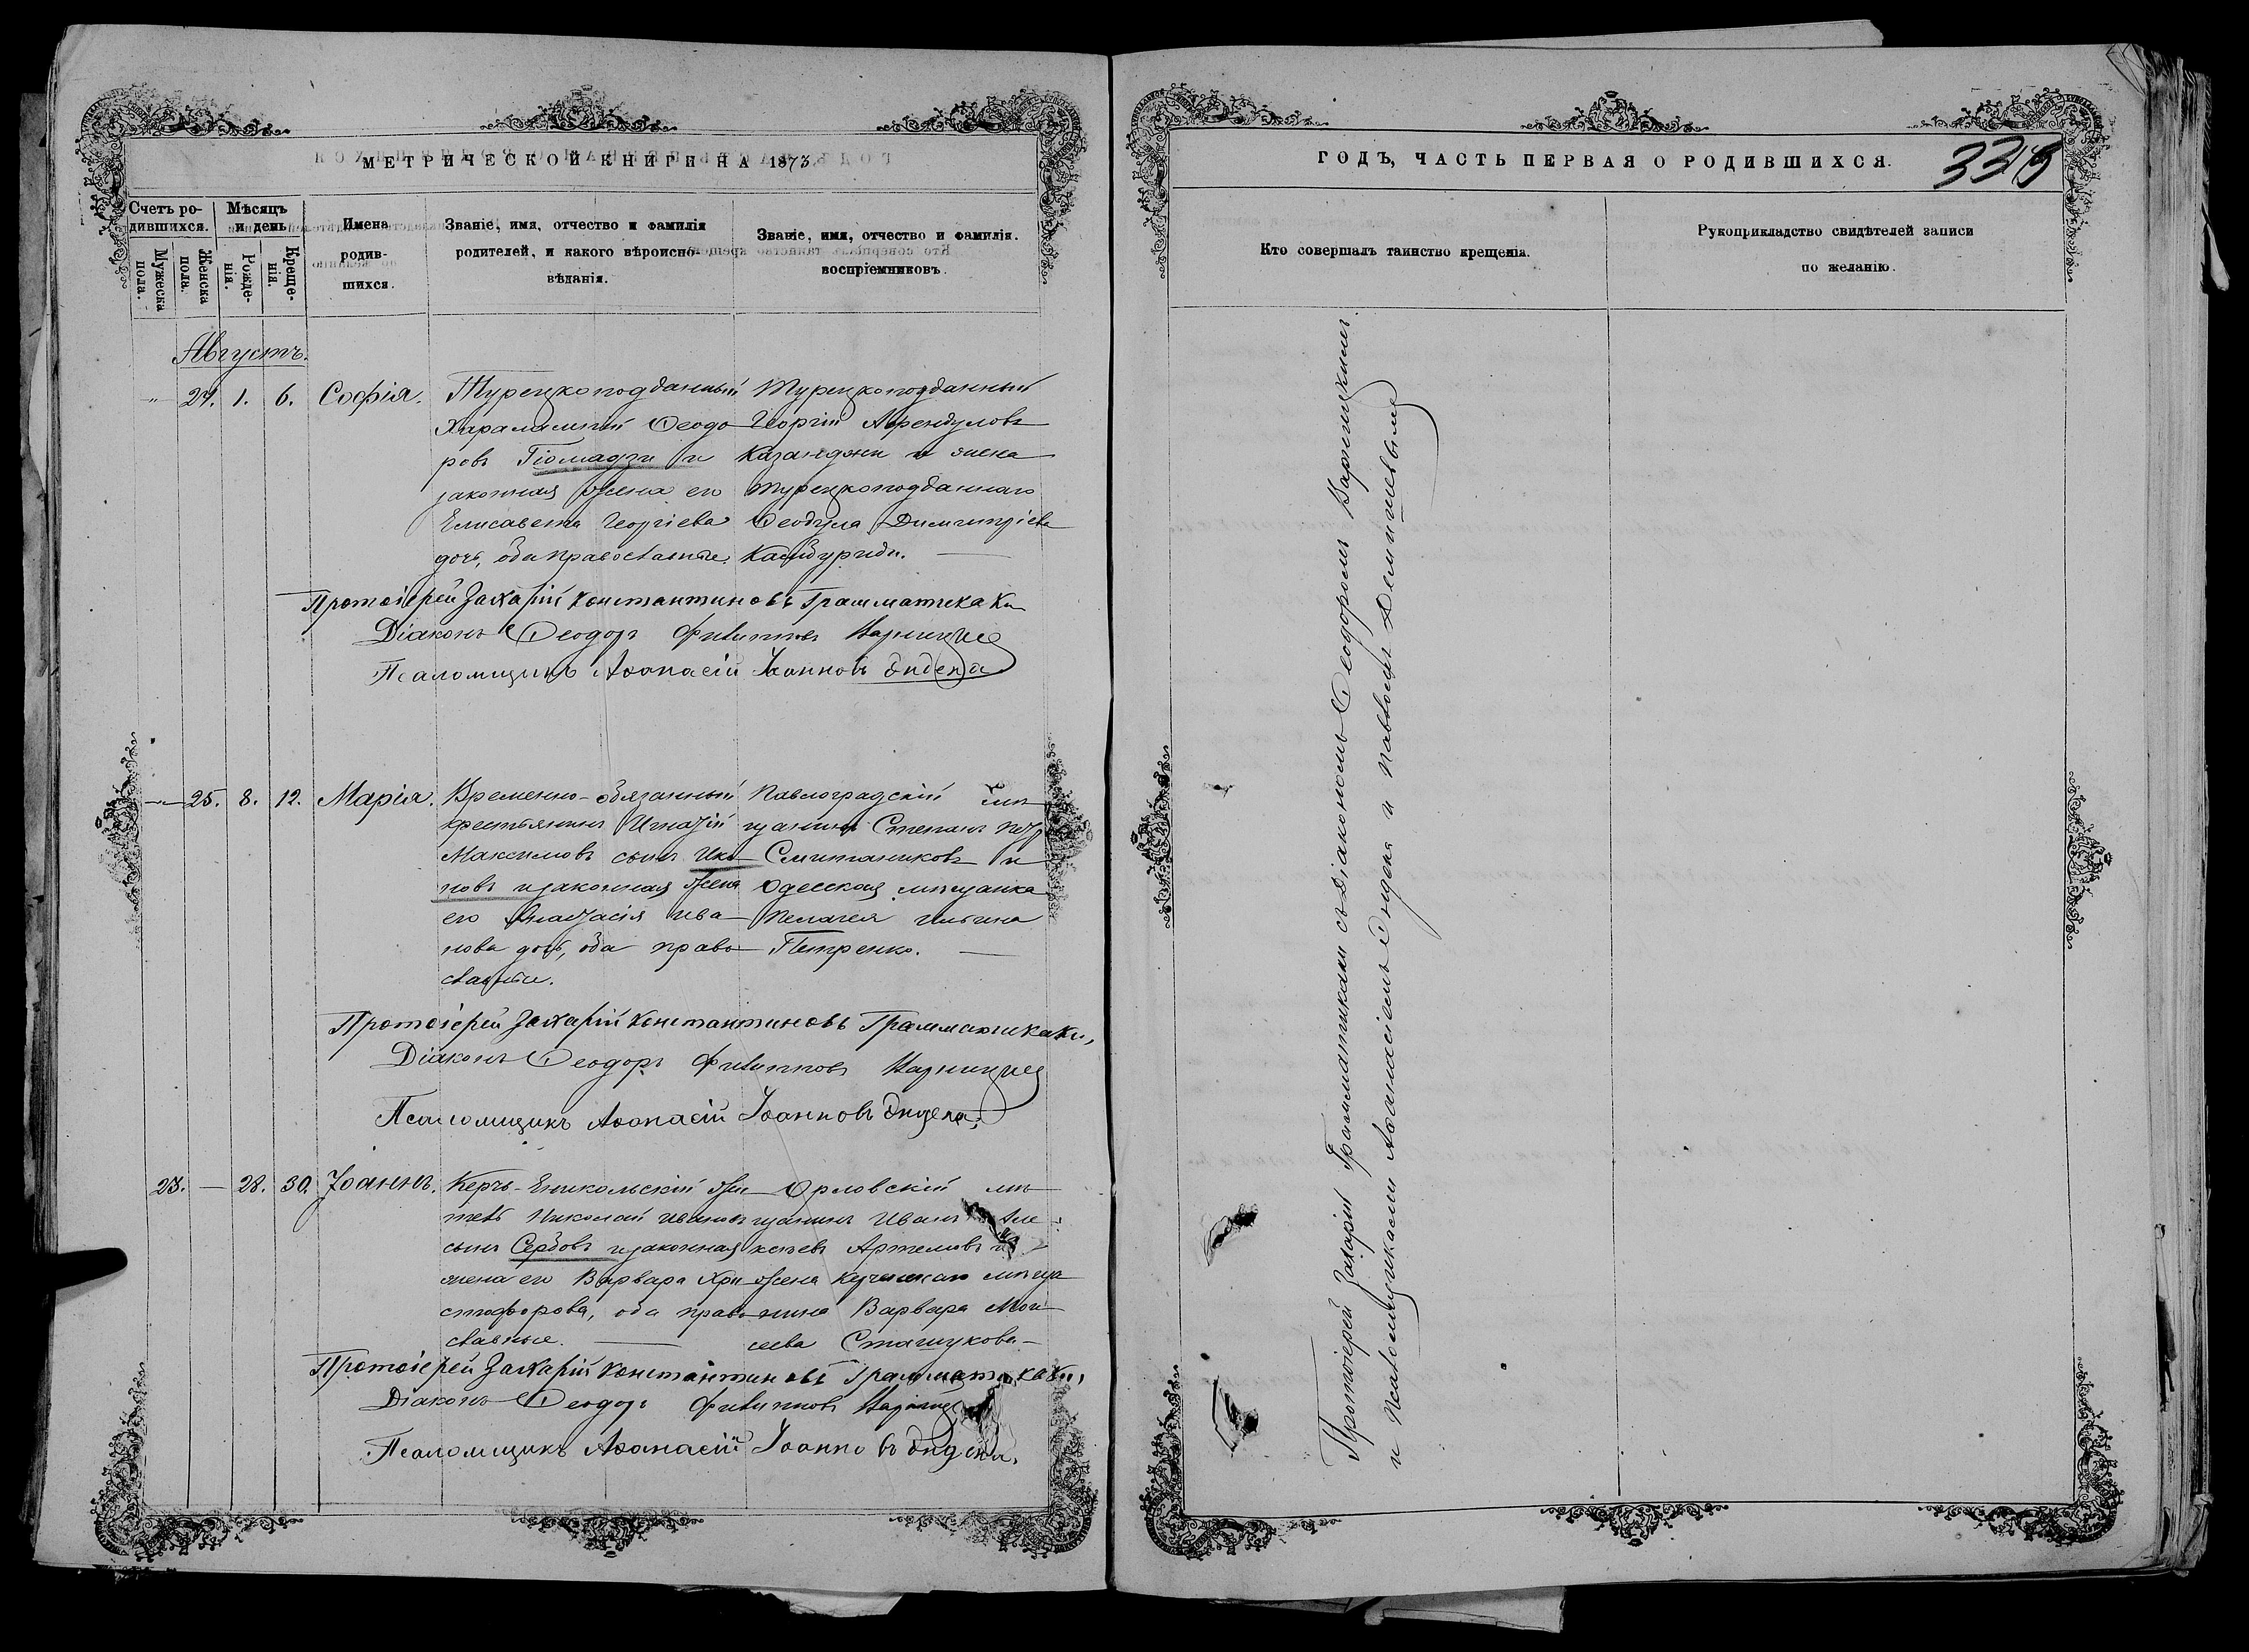 МЕТРИЧЕСКОЙ КНИГИ НА 1873
Счетъ ро-
дившихся.
Мѣсяцъ
и день
Мужеска
пола.
Женска
пола.
Рожде-
нія.
Креще-
нія.
Имена
родив-
шихся.
Званіе, имя, отчество и фамилія
родителей, и какого вѣроиспо-
вѣданія.
Званіе, имя, отчество и фамилія.
воспріемниковъ.
Августъ.
" 24. 1. 6. Софія.
Турецкоподданный
Харалампій Ѳеодо
ровъ Гіомадзи и
законная жена его
Елисавета Георгіева
дочь, оба православные.
Турецкоподданный
Георгій
Казанджи и жена
турецкоподданнаго
Ѳеодула Димитріева
Протоіерей Захарій Константиновъ Грамматикаки
Діаконъ Ѳеодоръ Филипповъ
Псаломщикъ Аѳанасій Іоанновъ
— 25. 8. 12. Марія.
Временно-обязанный
крестьянинъ Игнатій
Максимовъ сынъ Ико
новъ и законная жена
его Анастасія Ива
нова дочь, оба право
славные.
Павлоградскій мѣ
щанинъ Степанъ
и
Одесская мѣщанка
Пелагея Ильина
Петренко.
Протоіерей Захарій Константиновъ Грамматикаки,
Діаконъ Ѳеодоръ Филипповъ
Псаломщикъ Аѳанасій Іоанновъ
23. — 28. 30. Іоаннъ.
Керчь-Еникольскій жи
тель Николай Ивановъ
сынъ Сербовъ и законная
жена его Варвара Хри
стофорова, оба право
славные.
Орловскій мѣ
щанинъ Иванъ Але
ксѣевъ
жена мѣща
нина Варвара Мои
сеева Сташукова
Протоіерей Захарій Константиновъ Грамматикаки,
Діаконъ Ѳеодоръ Филипповъ
Псаломщикъ Аѳанасій Іоанновъ
ГОДЪ, ЧАСТЬ ПЕРВАЯ О РОДИВШИХСЯ.
Кто совершалъ таинство крещенія.
Рукоприкладство свидѣтелей записи
по желанію.
Протоіерей Захарій Грамматикаки съ діакономъ Ѳеодоромъ
и псаломщиками Аѳанасіемъ и Павломъ